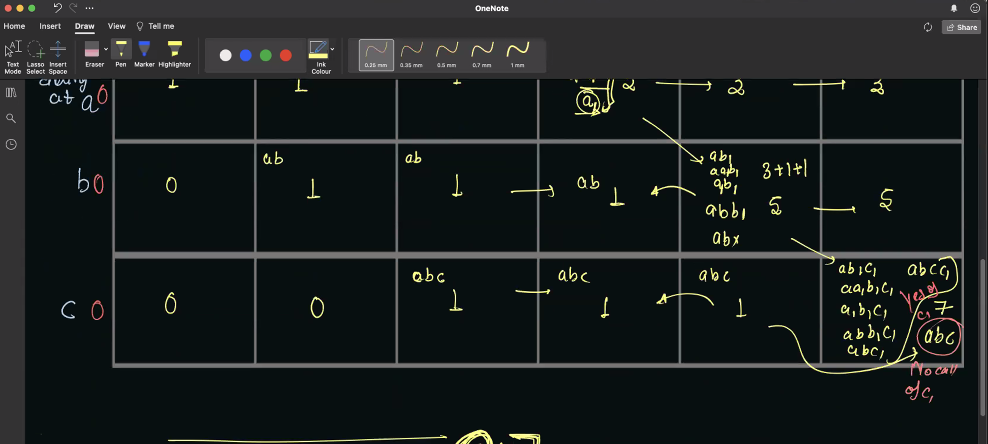 OneNote
Home Insert Draw View Tell me
Share
Text Mode
Lasso Select
Insert Space
Eraser
Pen
Marker
Highlighter
Ink Colour
0.25 mm
0.35 mm
0.5 mm
0.7 mm
1 mm
at a 0 1 1 1 2 2
a₁
b 0 0 ab 1 ab 1 ab 1
ab₁
aab₁ 3+1+1
abb₁ 5 5
abx
c 0 0 0 abc 1 abc 1 abc 1
ab₁c₁ abcc₁
aa₁b₁c₁
a₁b₁c₁ 7
abb₁c₁ abc
abc₁
No call
of c₁